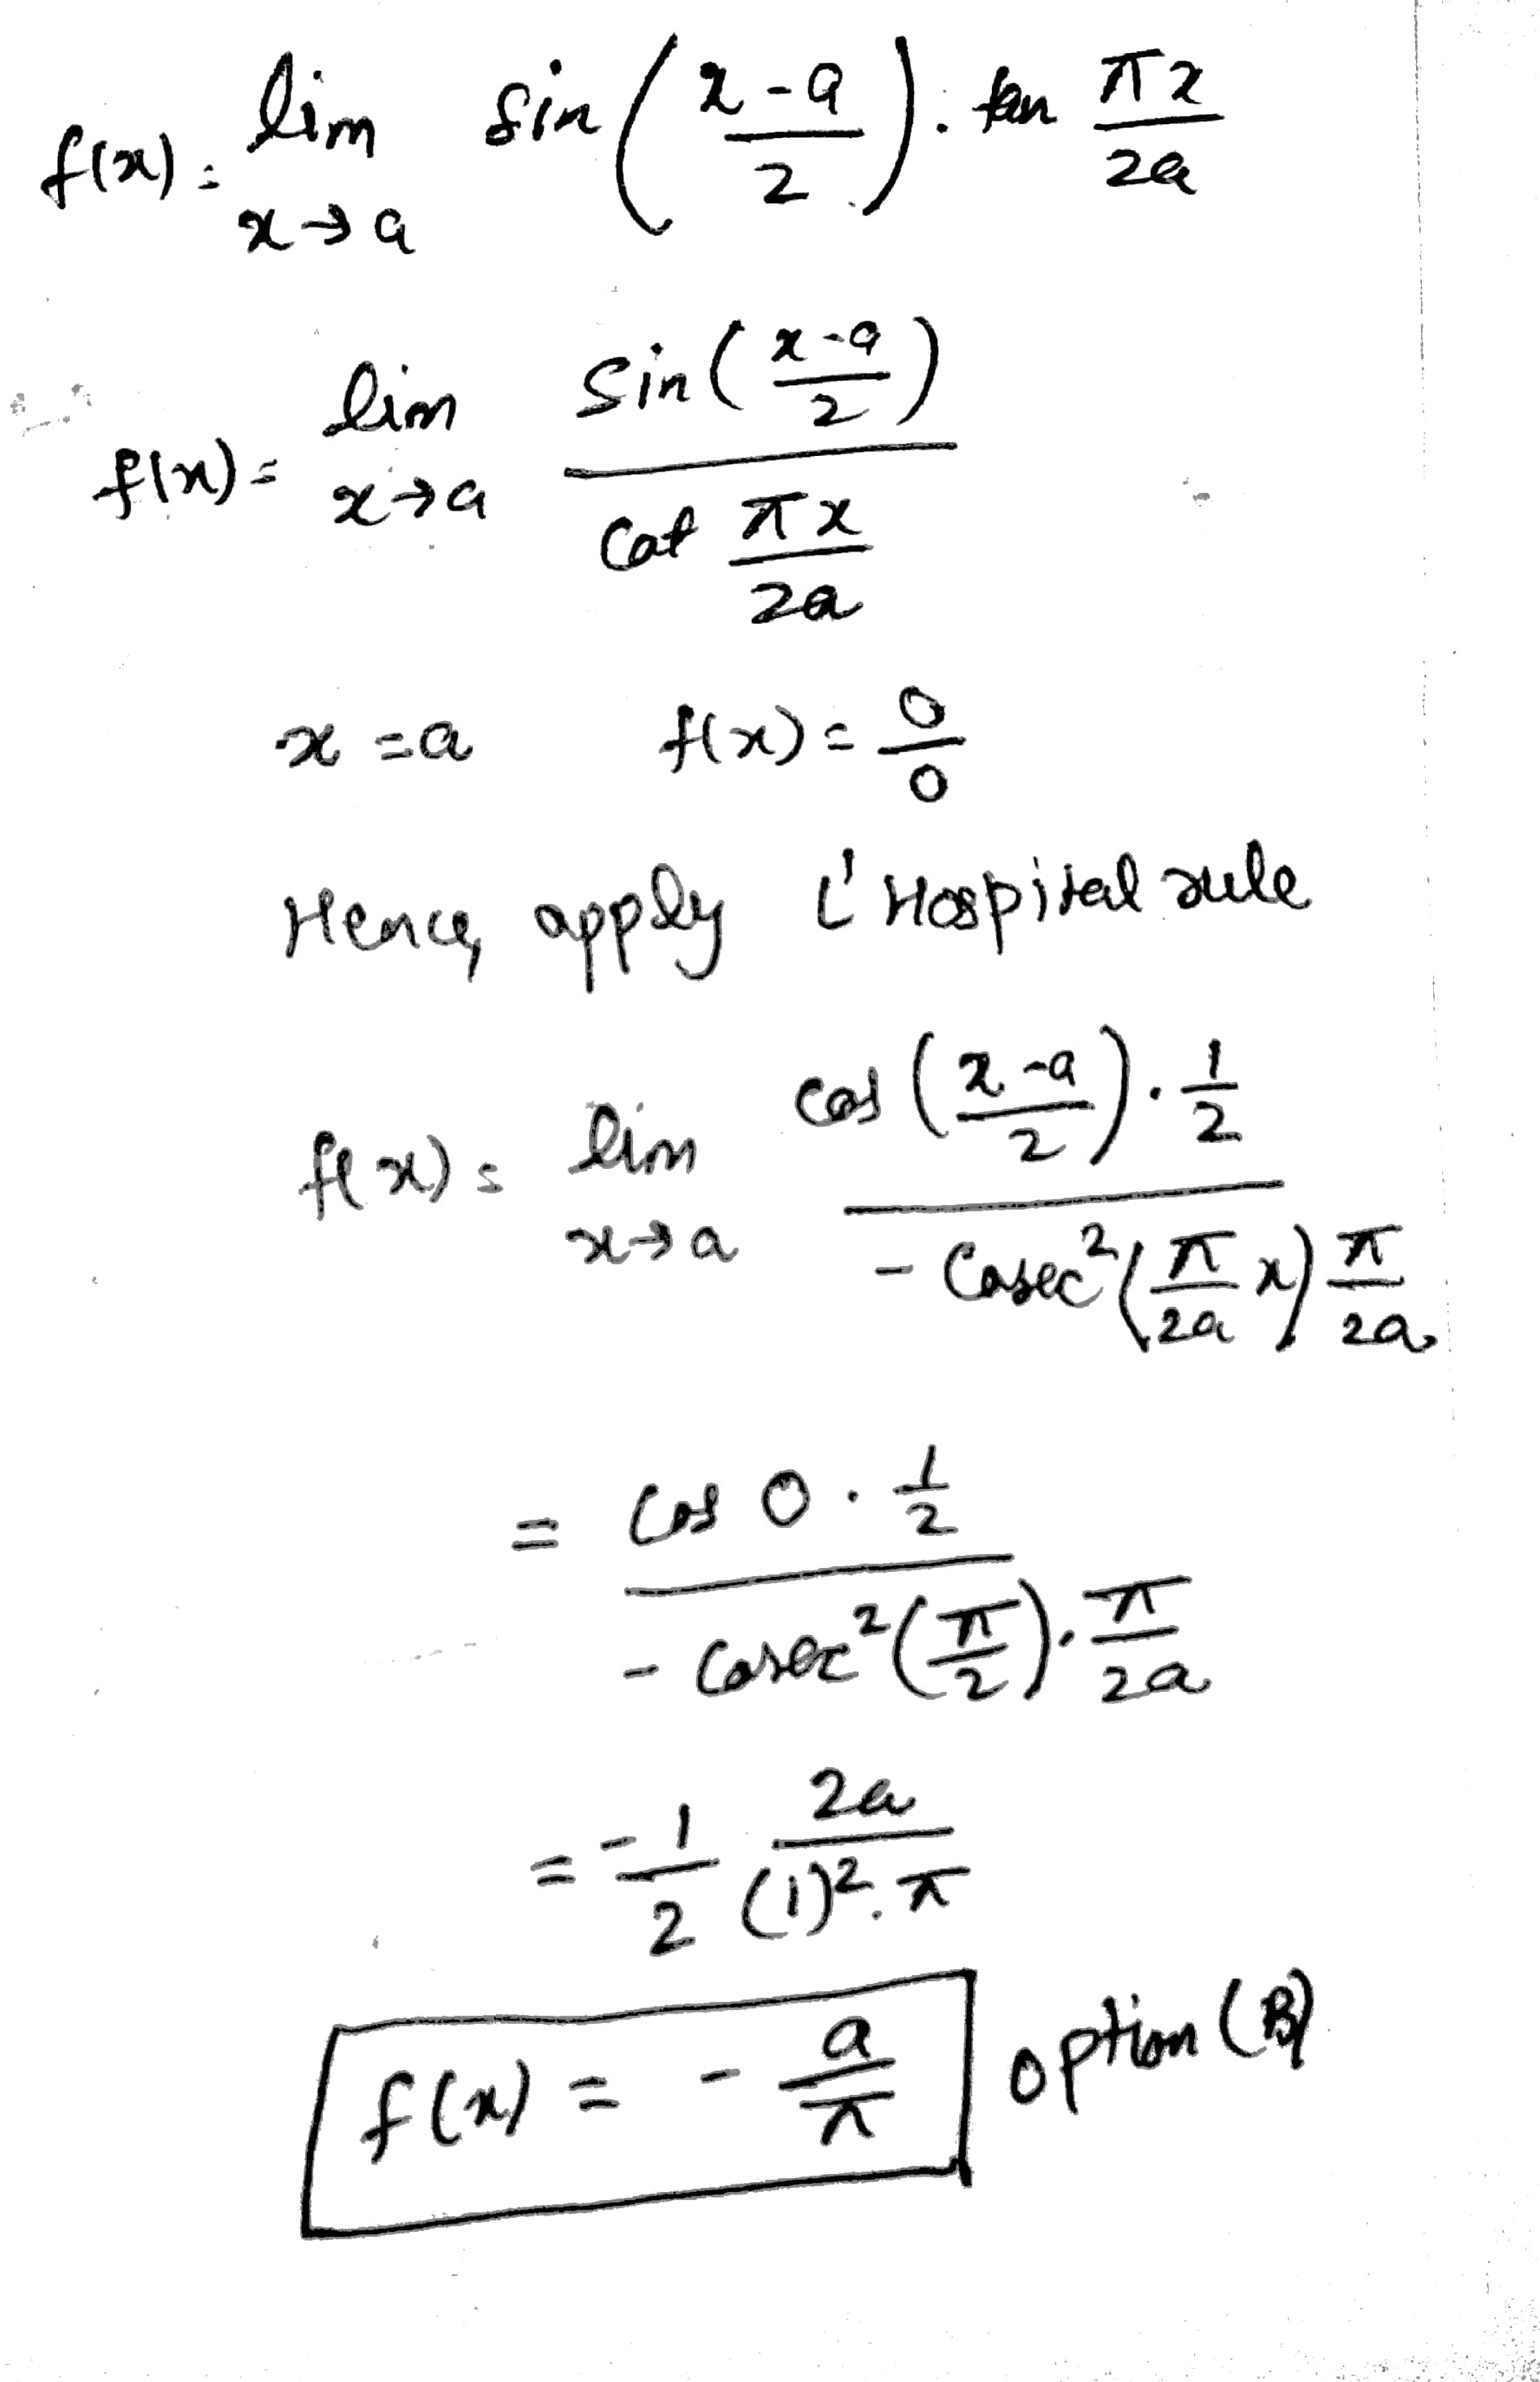 f(x) = lim x→a sin((x-a)/2) . tan πx/2a
f(x) = lim x→a sin((x-a)/2) / cot πx/2a
x = a f(x) = 0/0
Hence, apply L' Hospital rule
f(x) = lim x→a cos((x-a)/2) . 1/2 / - cosec²(π/2a x) π/2a
= cos 0 . 1/2 / - cosec²(π/2) . π/2a
= -1/2 2a/(1)² . π
f(x) = - a/π option (B)